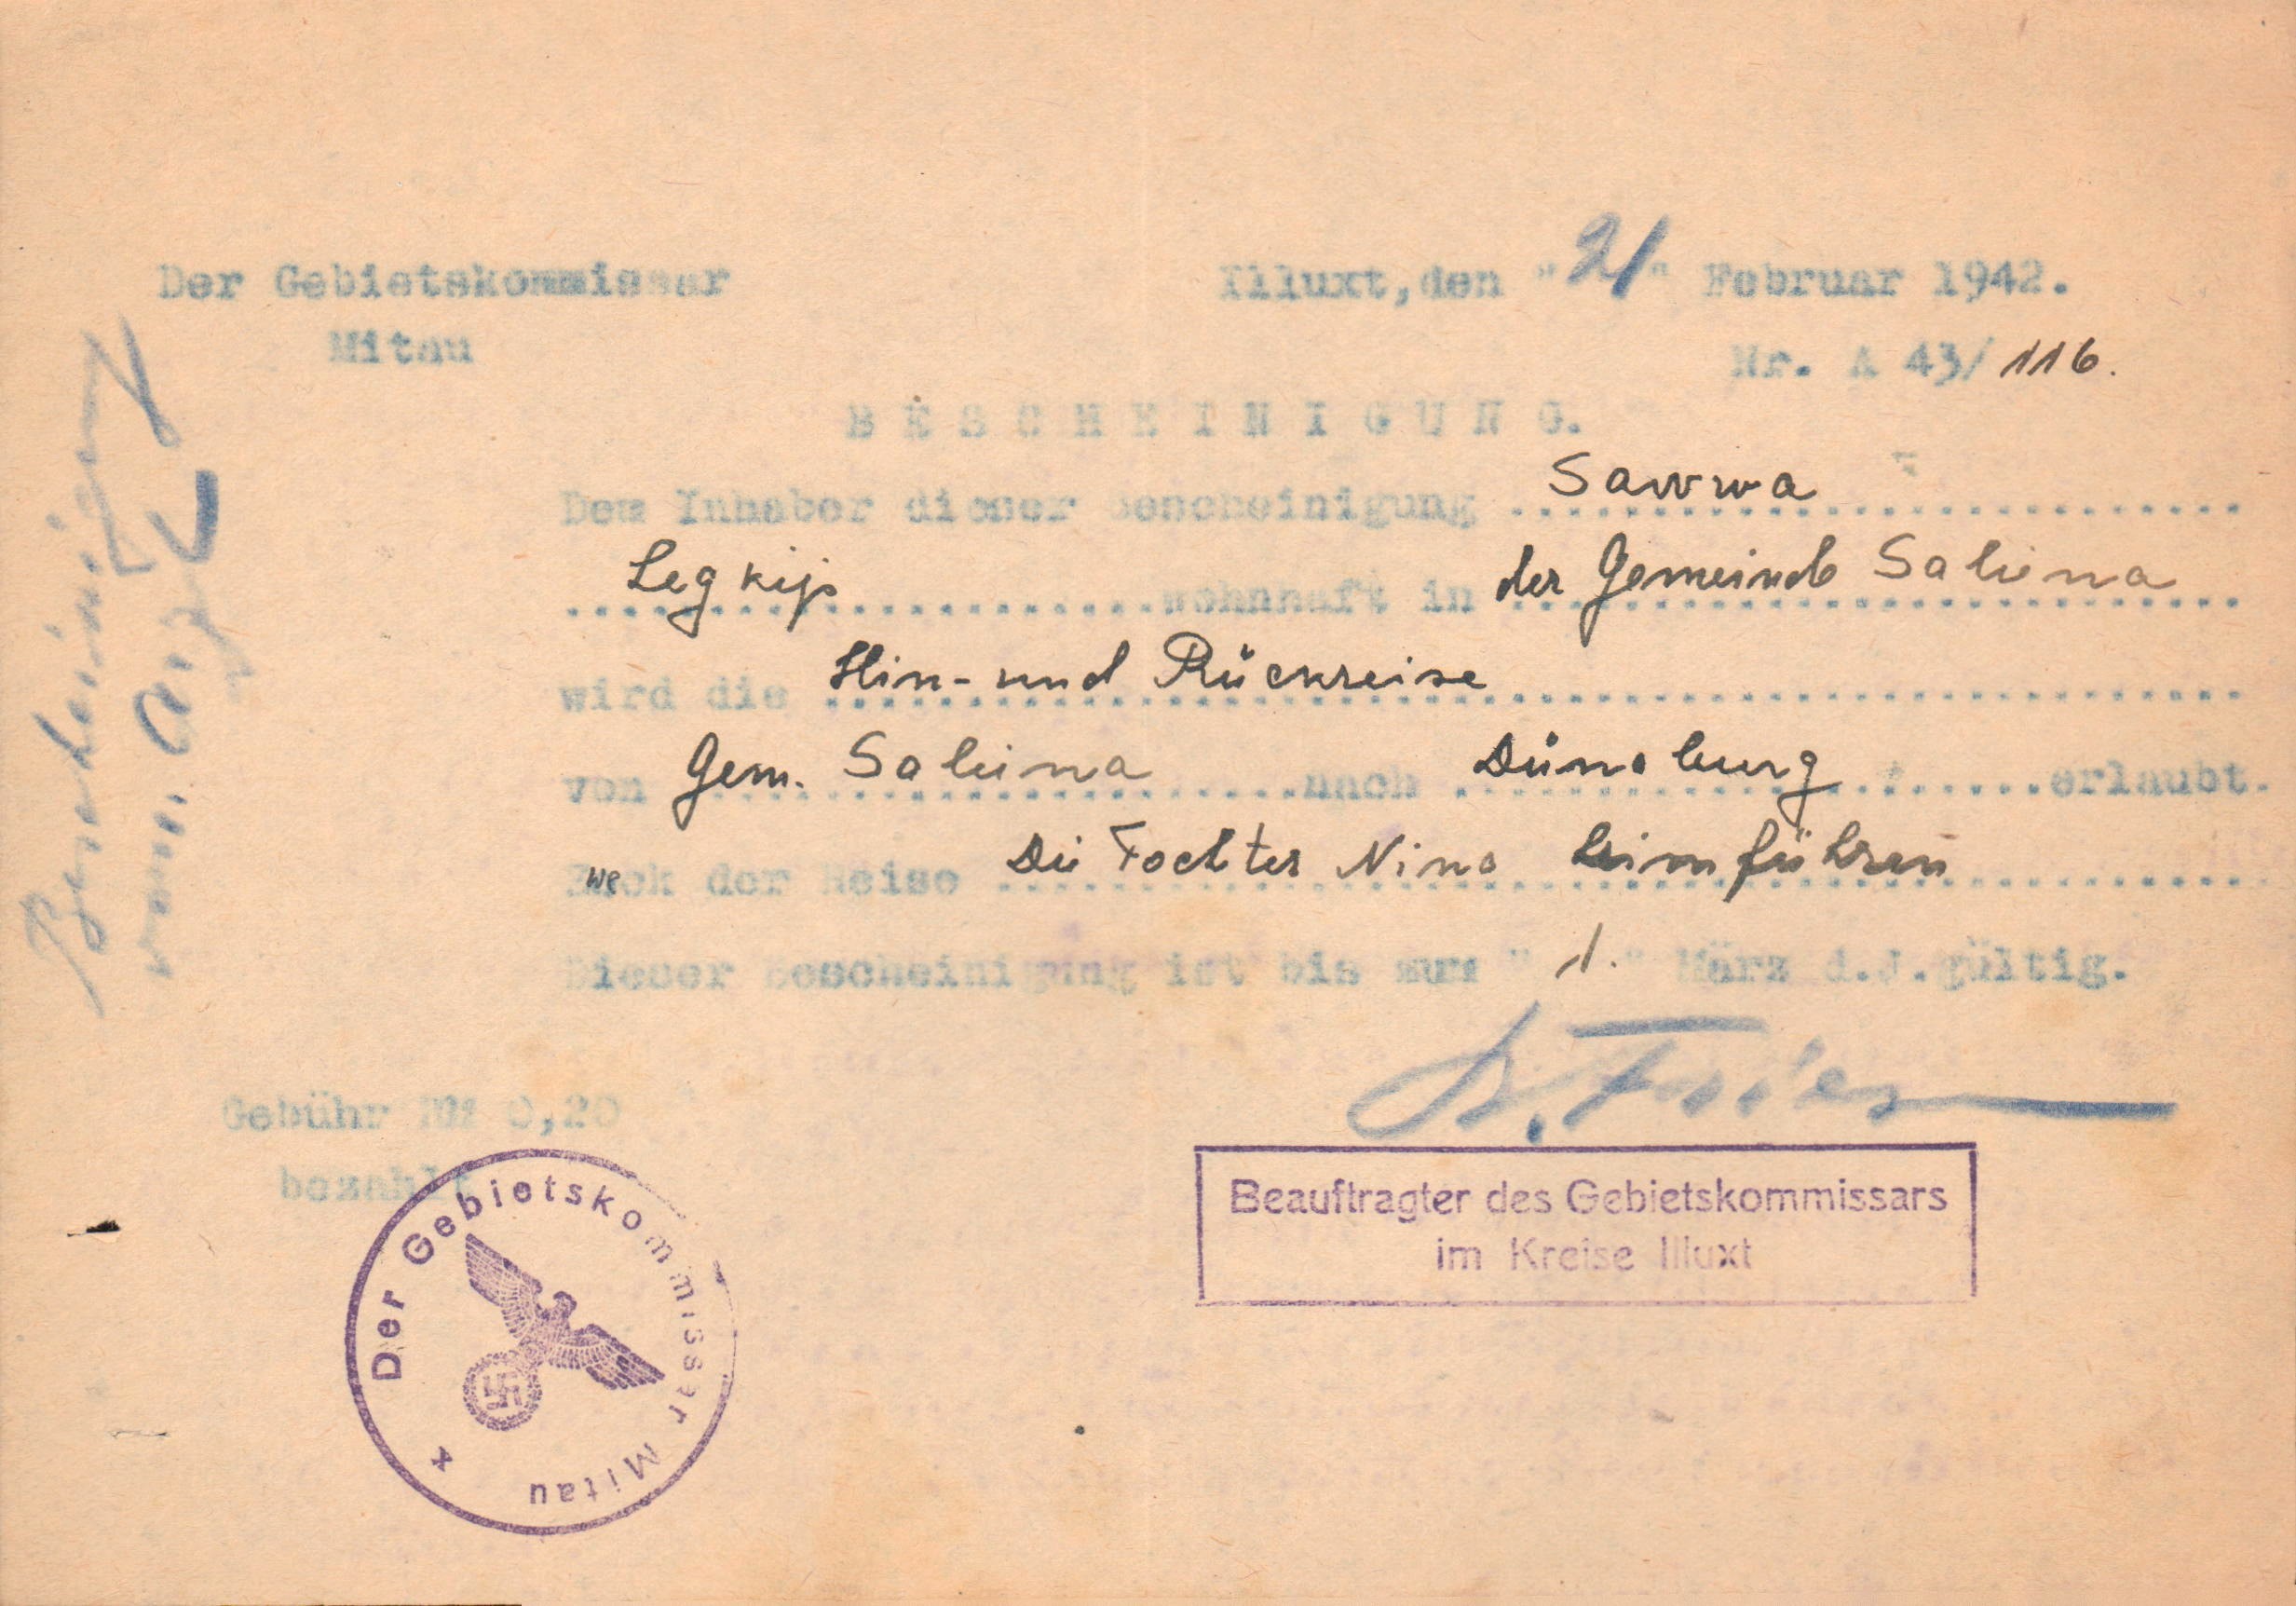 Der Gebietskommissar
Mitau
Illuxt, den "21" Februar 1942.
Nr. A 43/116.
BESCHEINIGUNG.
Dem Inhaber dieser Bescheinigung Sawwa
Legkijs wohnhaft in der Gemeinde Saliena
wird die Hin- und Rückreise
von Gem. Saliena nach Dünaburg erlaubt.
Zweck der Reise Die Tochter Nina heimführen
Dieser Bescheinigung ist bis zum "1." März d.J. gültig.
Gebühr RM 0,20
bezahlt
Beauftragter des Gebietskommissars
im Kreise Illuxt
Der Gebietskommissar Mitau x